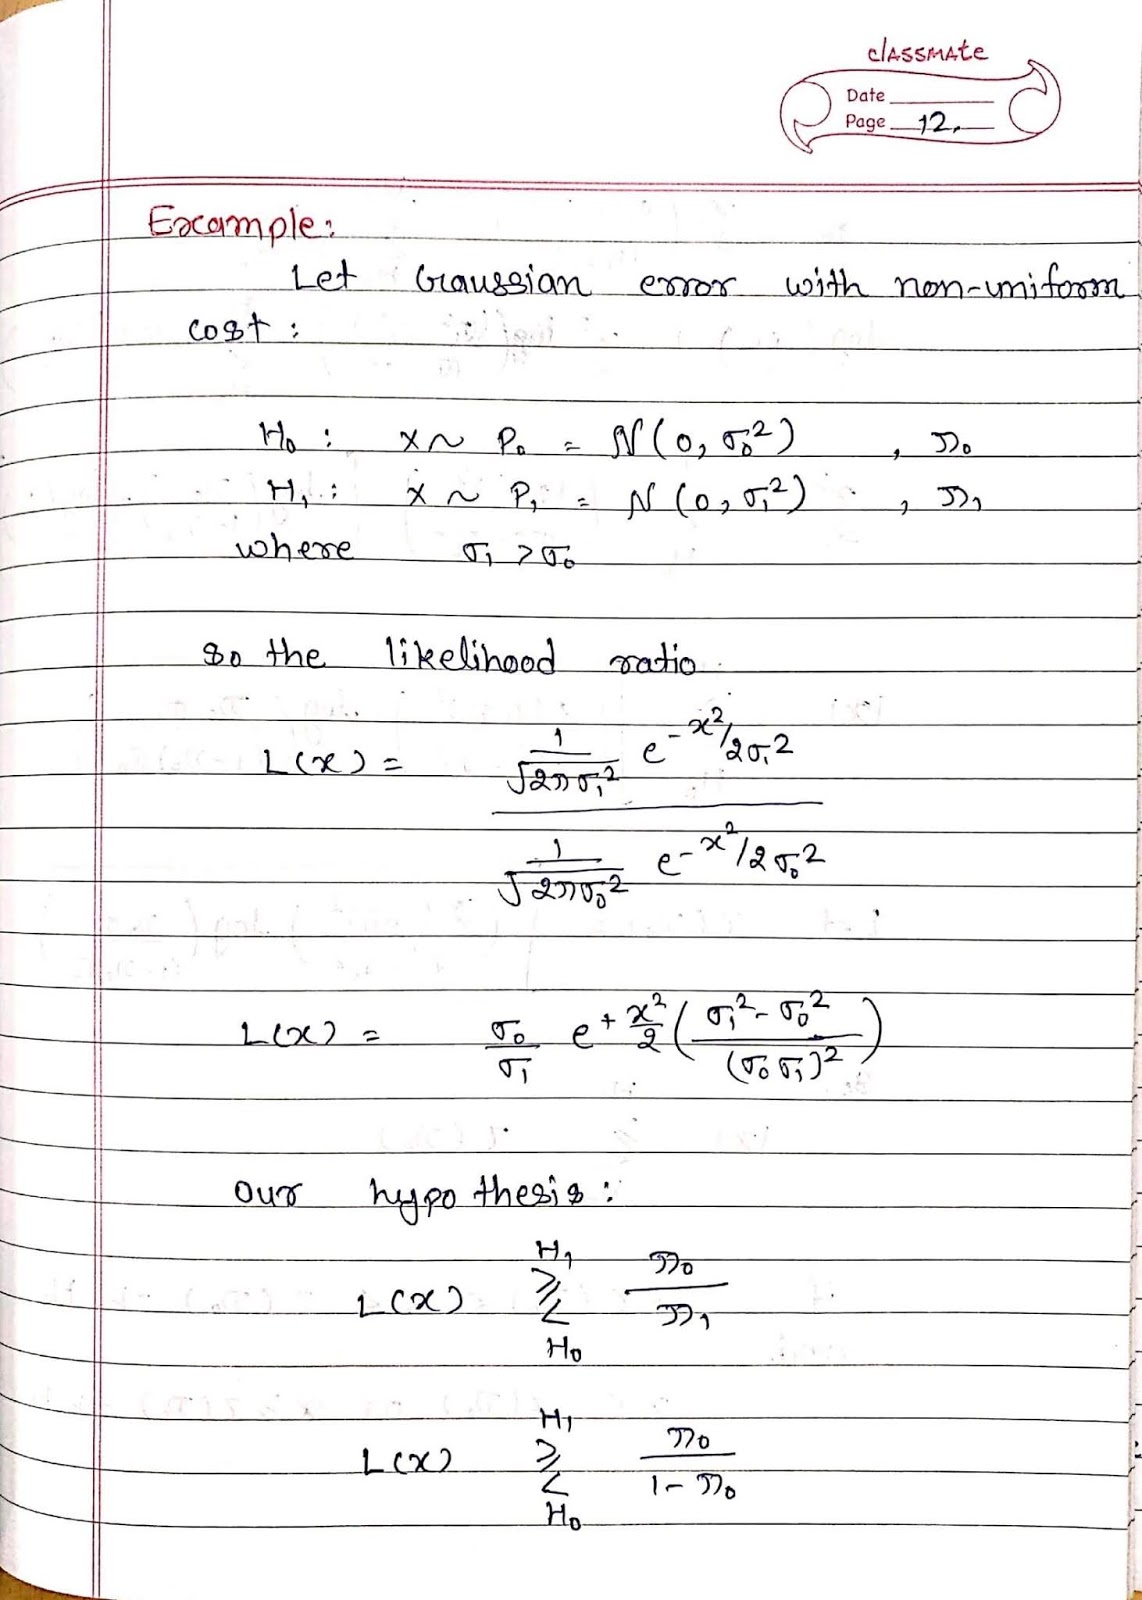 classmate
Date
Page 12.
Example:
Let Gaussian error with non-uniform
cost:
H₀ : x ~ P₀ = N(0, σ₀²) , π₀
H₁ : x ~ P₁ = N(0, σ₁²) , π₁
where σ₁ > σ₀
so the likelihood ratio
L(x) = 1/√2πσ₁² e^-x²/2σ₁²
1/√2πσ₀² e^-x²/2σ₀²
L(x) = σ₀/σ₁ e^+x²/2 (σ₁² - σ₀²/(σ₀σ₁)²)
our hypothesis:
H₁
L(x) ≥< π₀/π₁
H₀
H₁
L(x) ≥< π₀/1-π₀
H₀